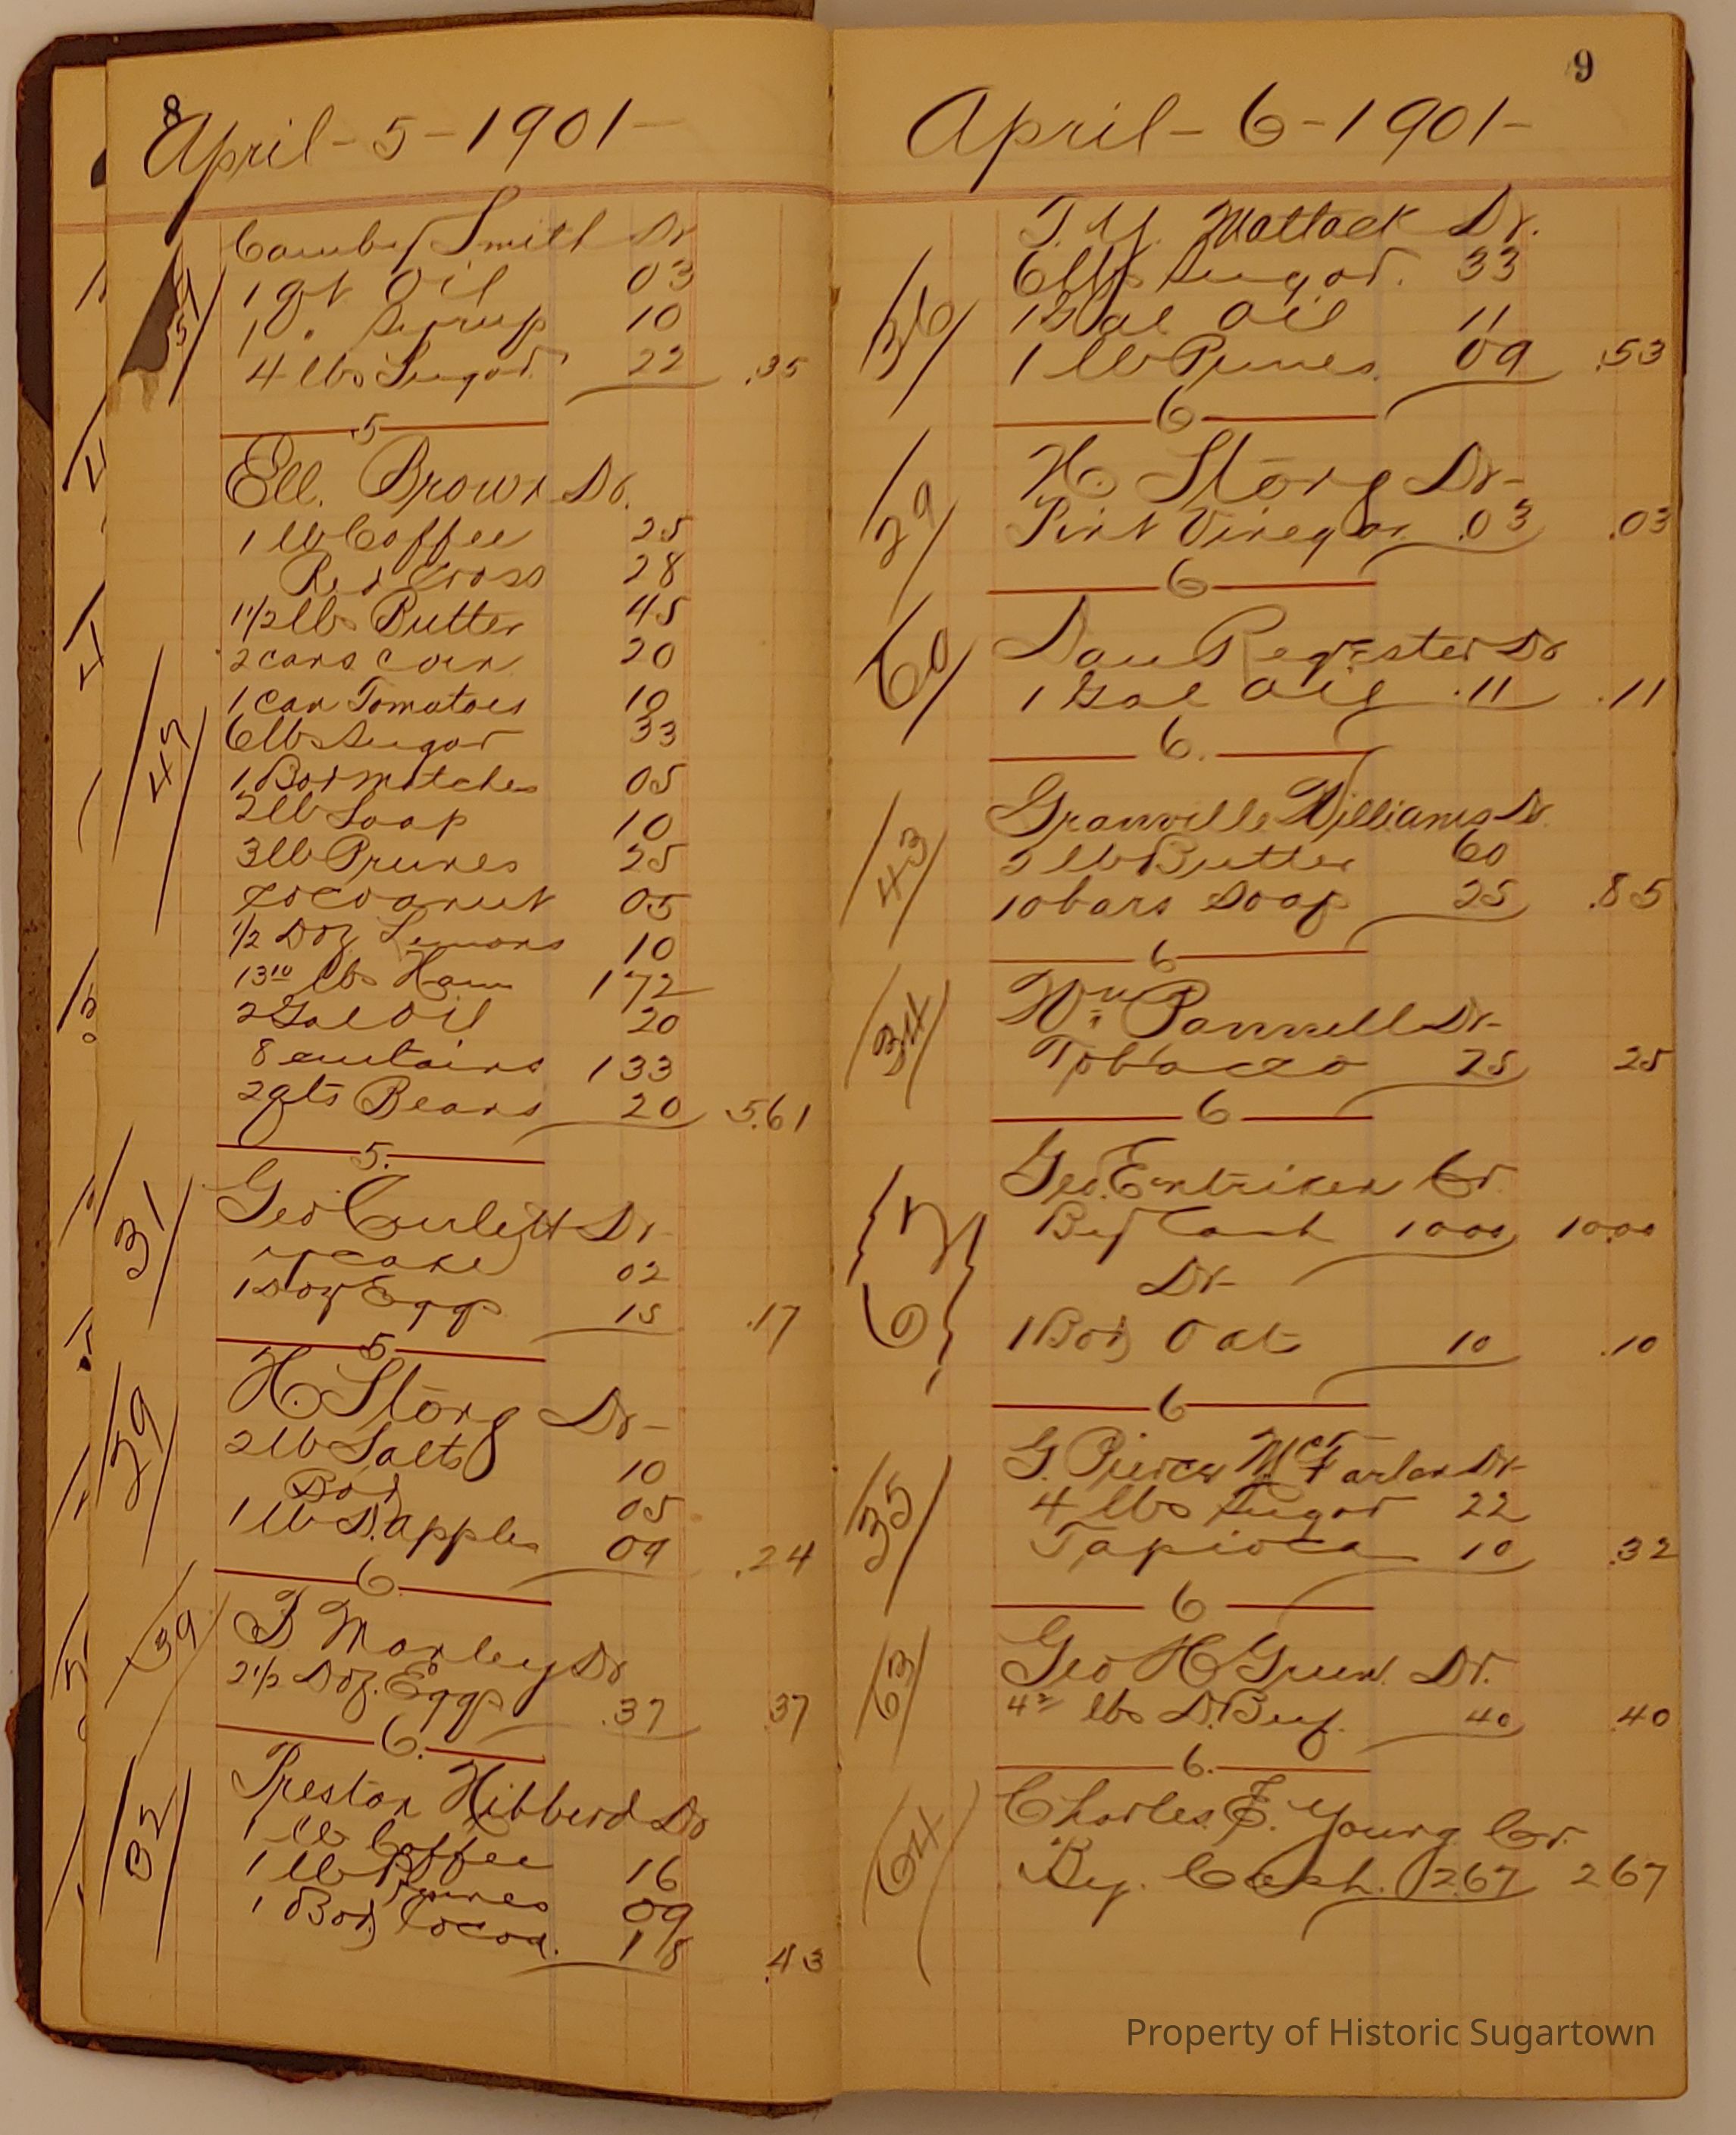 8
April - 5 - 1901 -
51
Smith Dr
1 qt Oil 03
1 " Syrup 10
4 lbs Sugar 22 .35
5
Ell. Brown Dr.
1 lb Coffee 25
Red Cross 28
1 1/2 lbs Butter 45
2 cans corn 20
1 can Tomatoes 10
6 lbs Sugar 33
1 Box matches 05
2 lb Soap 10
3 lb Prunes 25
Cocoanut 05
1/2 Doz Lemons 10
13 10 lbs Ham 172
2 Gal Oil 20
8 curtains 133
2 qts Beans 20 5.61
5.
31
Geo Dr
02
1 Doz Eggs 15 .17
5
29
H. Storg Dr -
2 lb Salts 10
Box 05
1 lb D. apples 09 .24
6.
39
Morley Dr
2 1/2 Doz. Eggs .37 37
6.
32
Preston Hibberd Dr
1 lb Coffee 16
1 lb Prunes 09
1 Box Cocoa. 18 .43
9
April - 6 - 1901 -
36
Mattack Dr.
6 lbs Sugar. 33
1 Gal Oil 11
1 lb Prunes. 09 .53
6
29
H. Storg Dr -
Pint Vinegar .03 .03
6
60
Dan Regester Dr
1 Gal Oil .11 .11
6.
43
Granville Williams Dr.
2 lb Butter 60
10 bars Soap 25 .85
6
34
Wm Pannell Dr -
Tobacco 25 25
6
Geo. Entriken Cr.
By Cash 1000 10.00
Dr -
1 Box Oat 10 .10
6
35
G. Pierce McFarlan Dr -
4 lbs Sugar 22
Tapioca 10 .32
6
63
Geo H Green Dr.
4 2 lbs D. Beef. 40 .40
6.
64
Charles E. Young Cr.
By. Cash. 267 267
Property of Historic Sugartown